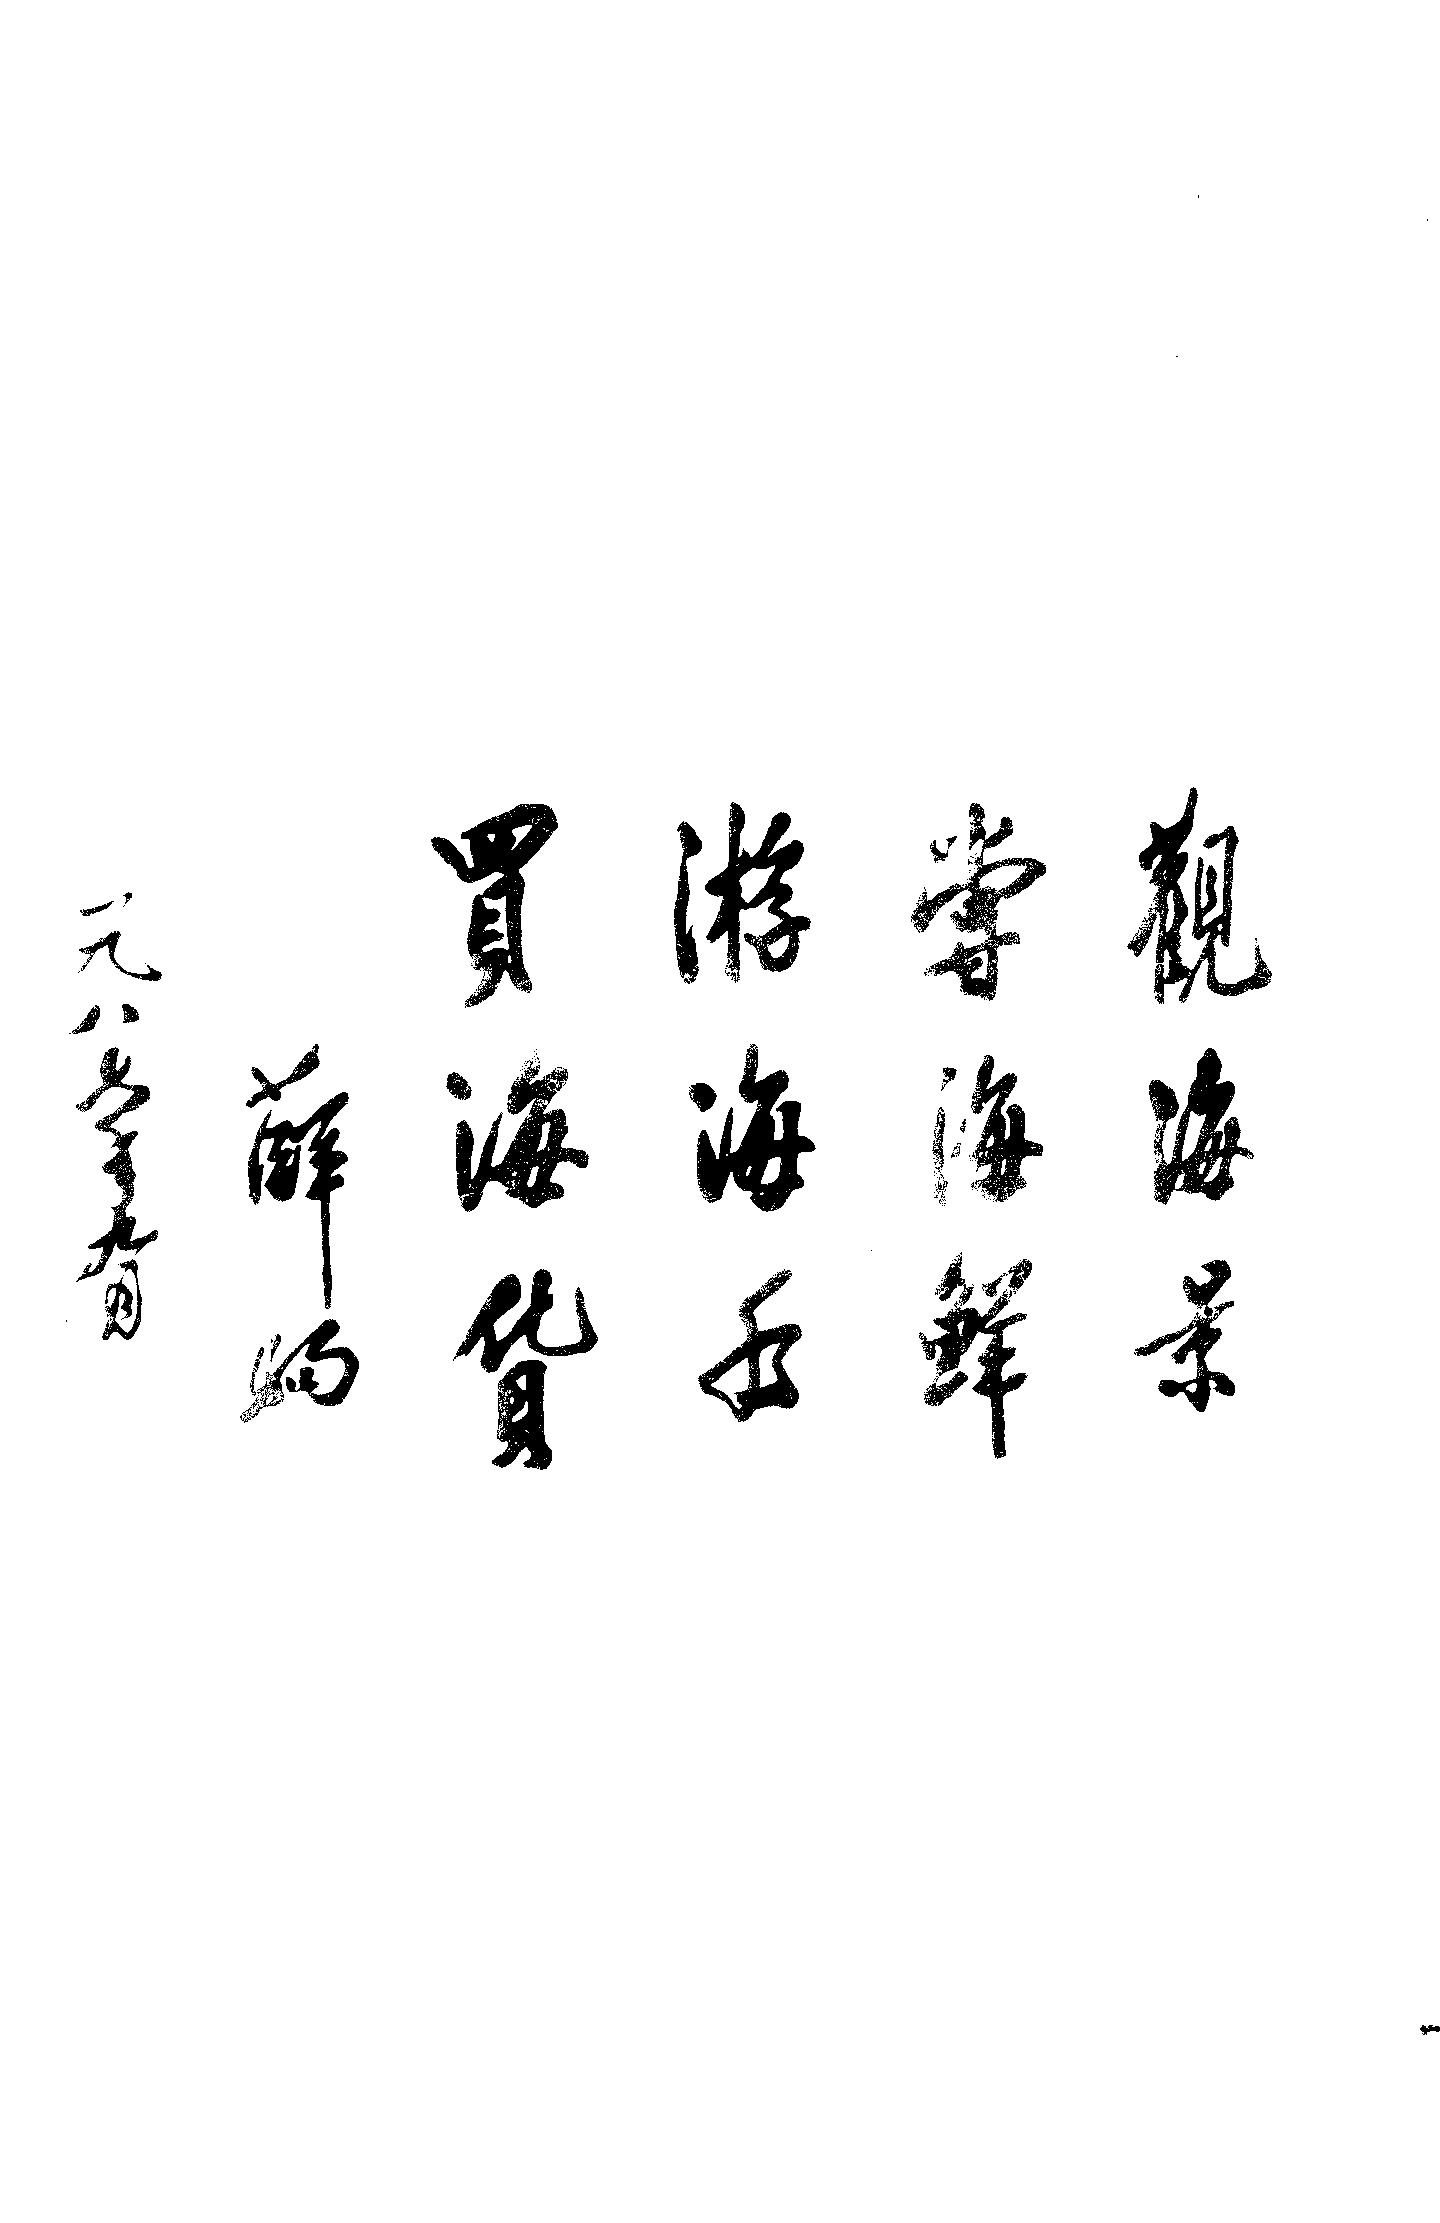 觀海景
嘗海鮮
游海水
買海貨
薛駒
一九八七年九月